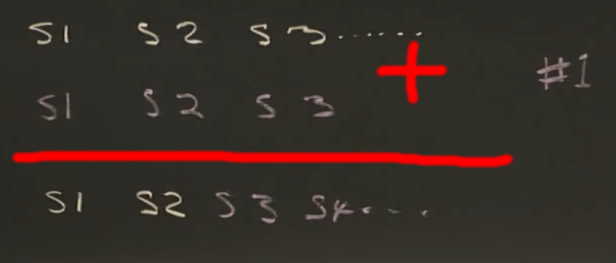 S1 S2 S3......
+
#1
S1 S2 S3
S1 S2 S3 S4....